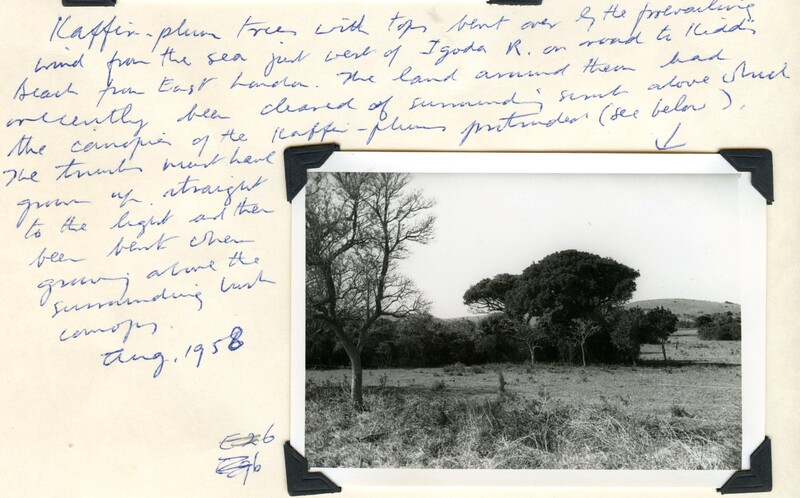 Kaffir-plum trees with tops bent over by the prevailing
wind from the sea just west of Igoda R. on road to Kidd's
Beach from East London. The land around them had
recently been cleared of surrounding scrub above which
the canopies of the Kaffir-plums protruded (see below).
The trunks must have
grown up straight
to the light and then
been bent when
growing above the
surrounding bush
canopy.
Aug. 1958
E26
E96